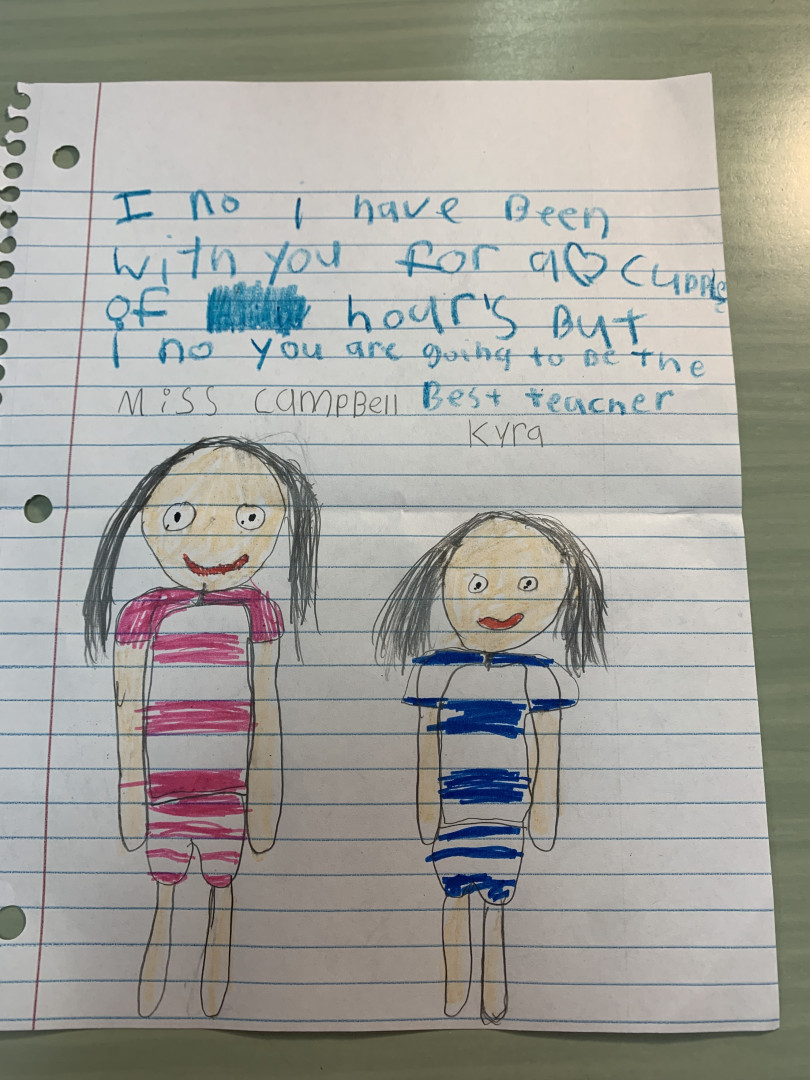 I no I have Been
with you for a♡ cupple
of hour's But
i no you are going to be the
Miss Campbell Best teacher
Kyra